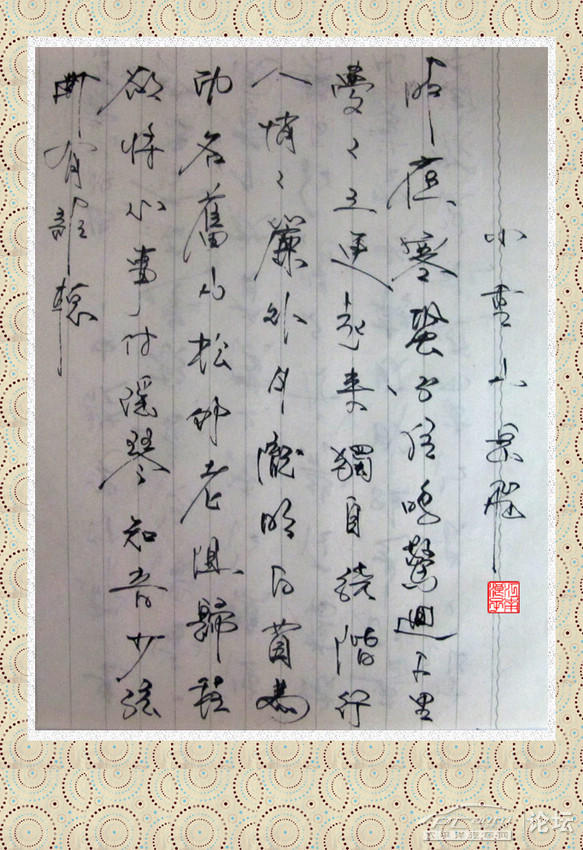 小重山岳飛
昨夜寒蛩不住鳴驚迴千里
夢已三更起来獨自繞階行
人悄〻簾外月朧明白首為
功名舊山松竹老阻歸程
欲将心事付瑶琴知音少弦
断有誰聽
太平洋汽车网 论坛